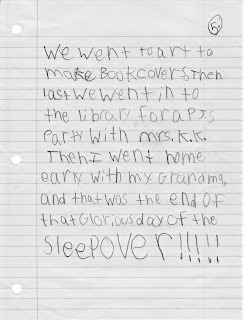 5.
We went to art to
make Bookcovers, Then
last we went in to
the library for a P.J.s
Party with mrs. K.K.
Then I went home
early with my Grandma,
and that was the end of
that Glorious day of the
sleepover!!!!!